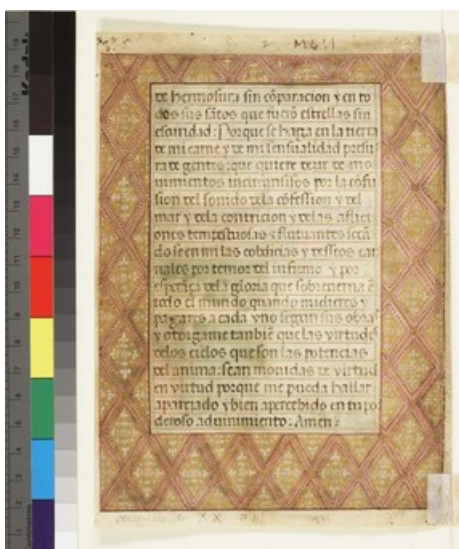 M6:1
de hermosura sin cõparacion y en to
dos sus sãtos que fuerõ estrellas sin
escuridad: Porque se haga en la tierra
de mi carne y de mi sensualidad presu
ra de gentes: que quiere dezir de mo
uimientos incitan por la cõfu
sion del sonido dela cõfession y del
mar y dela contricion y delas aflici
ones tempestuosas fluctuantes secã
dose en mi las cobdicias y desseos car
nales por temor del infierno y por
esperãça dela gloria que sobrẽverna ẽ
todo el mundo quando vinieres y
pagares a cada vno segun sus obras
y otorgame tambiẽ que las virtudes
delos cielos que son las potencias
del anima: sean mouidas de virtud
en virtud porque me pueda hallar
aparejado y bien apercebido en tu po
deroso aduinimiento: Amen:
XX